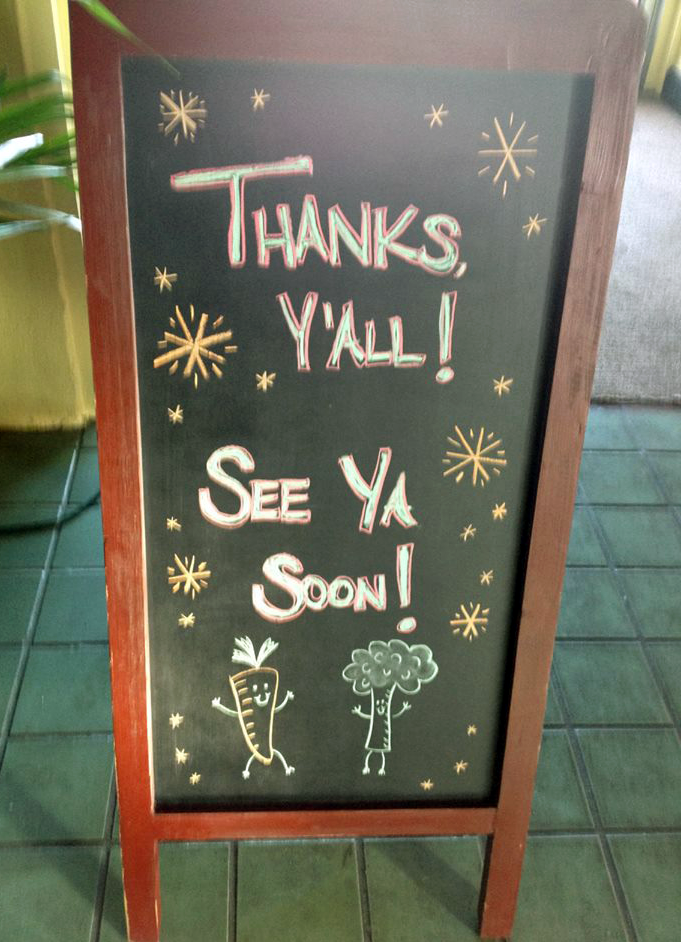 THANKS,
Y'ALL!
SEE YA
SOON!